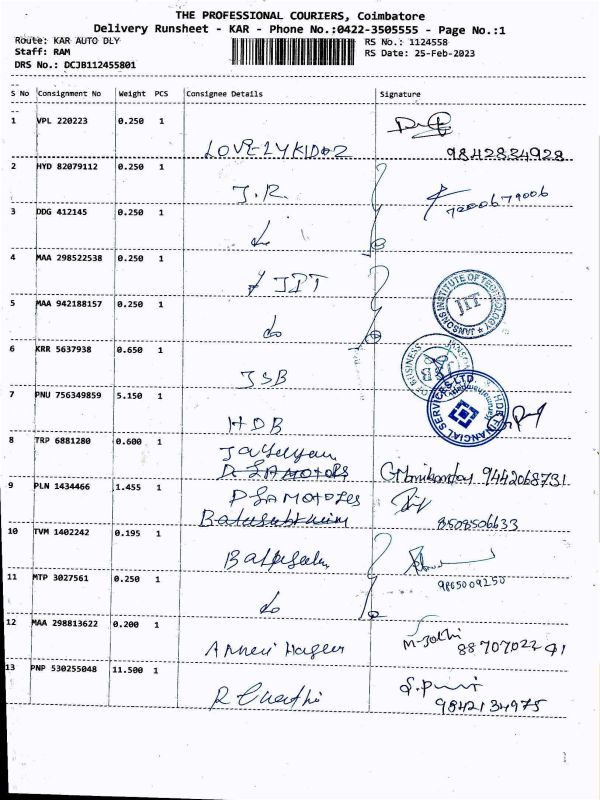 THE PROFESSIONAL COURIERS, Coimbatore
Delivery Runsheet - KAR - Phone No.:0422-3505555 - Page No.:1
Route: KAR AUTO DLY RS No.: 1124558
Staff: RAM RS Date: 25-Feb-2023
DRS No.: DCJB112455801
S No Consignment No Weight PCS Consignee Details Signature
1 VPL 220223 0.250 1
9842824928
2 HYD 82079112 0.250 1
J.R. 7200679006
3 DDG 412145 0.250 1
do
4 MAA 298522538 0.250 1
JIT
JANSONS INSTITUTE OF TECHNOLOGY
JIT
5 MAA 942188157 0.250 1
do
6 KRR 5637938 0.650 1
JSB
OF BUSINESS
JSB
7 PNU 756349859 5.150 1
HDB
HDB FINANCIAL SERVICES LTD.
8 TRP 6881280 0.600 1
MOTORS 9442068731
9 PLN 1434466 1.455 1
8508506633
10 TVM 1402242 0.195 1
9865009250
11 MTP 3027561 0.250 1
do
12 MAA 298813622 0.200 1
M-Jothi
13 PNP 530255048 11.500 1
9842134975